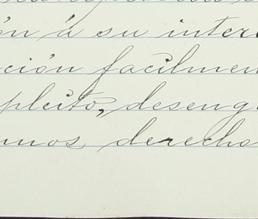 ón á su inter
ción facilmen
pleito, deseng
mos derecho